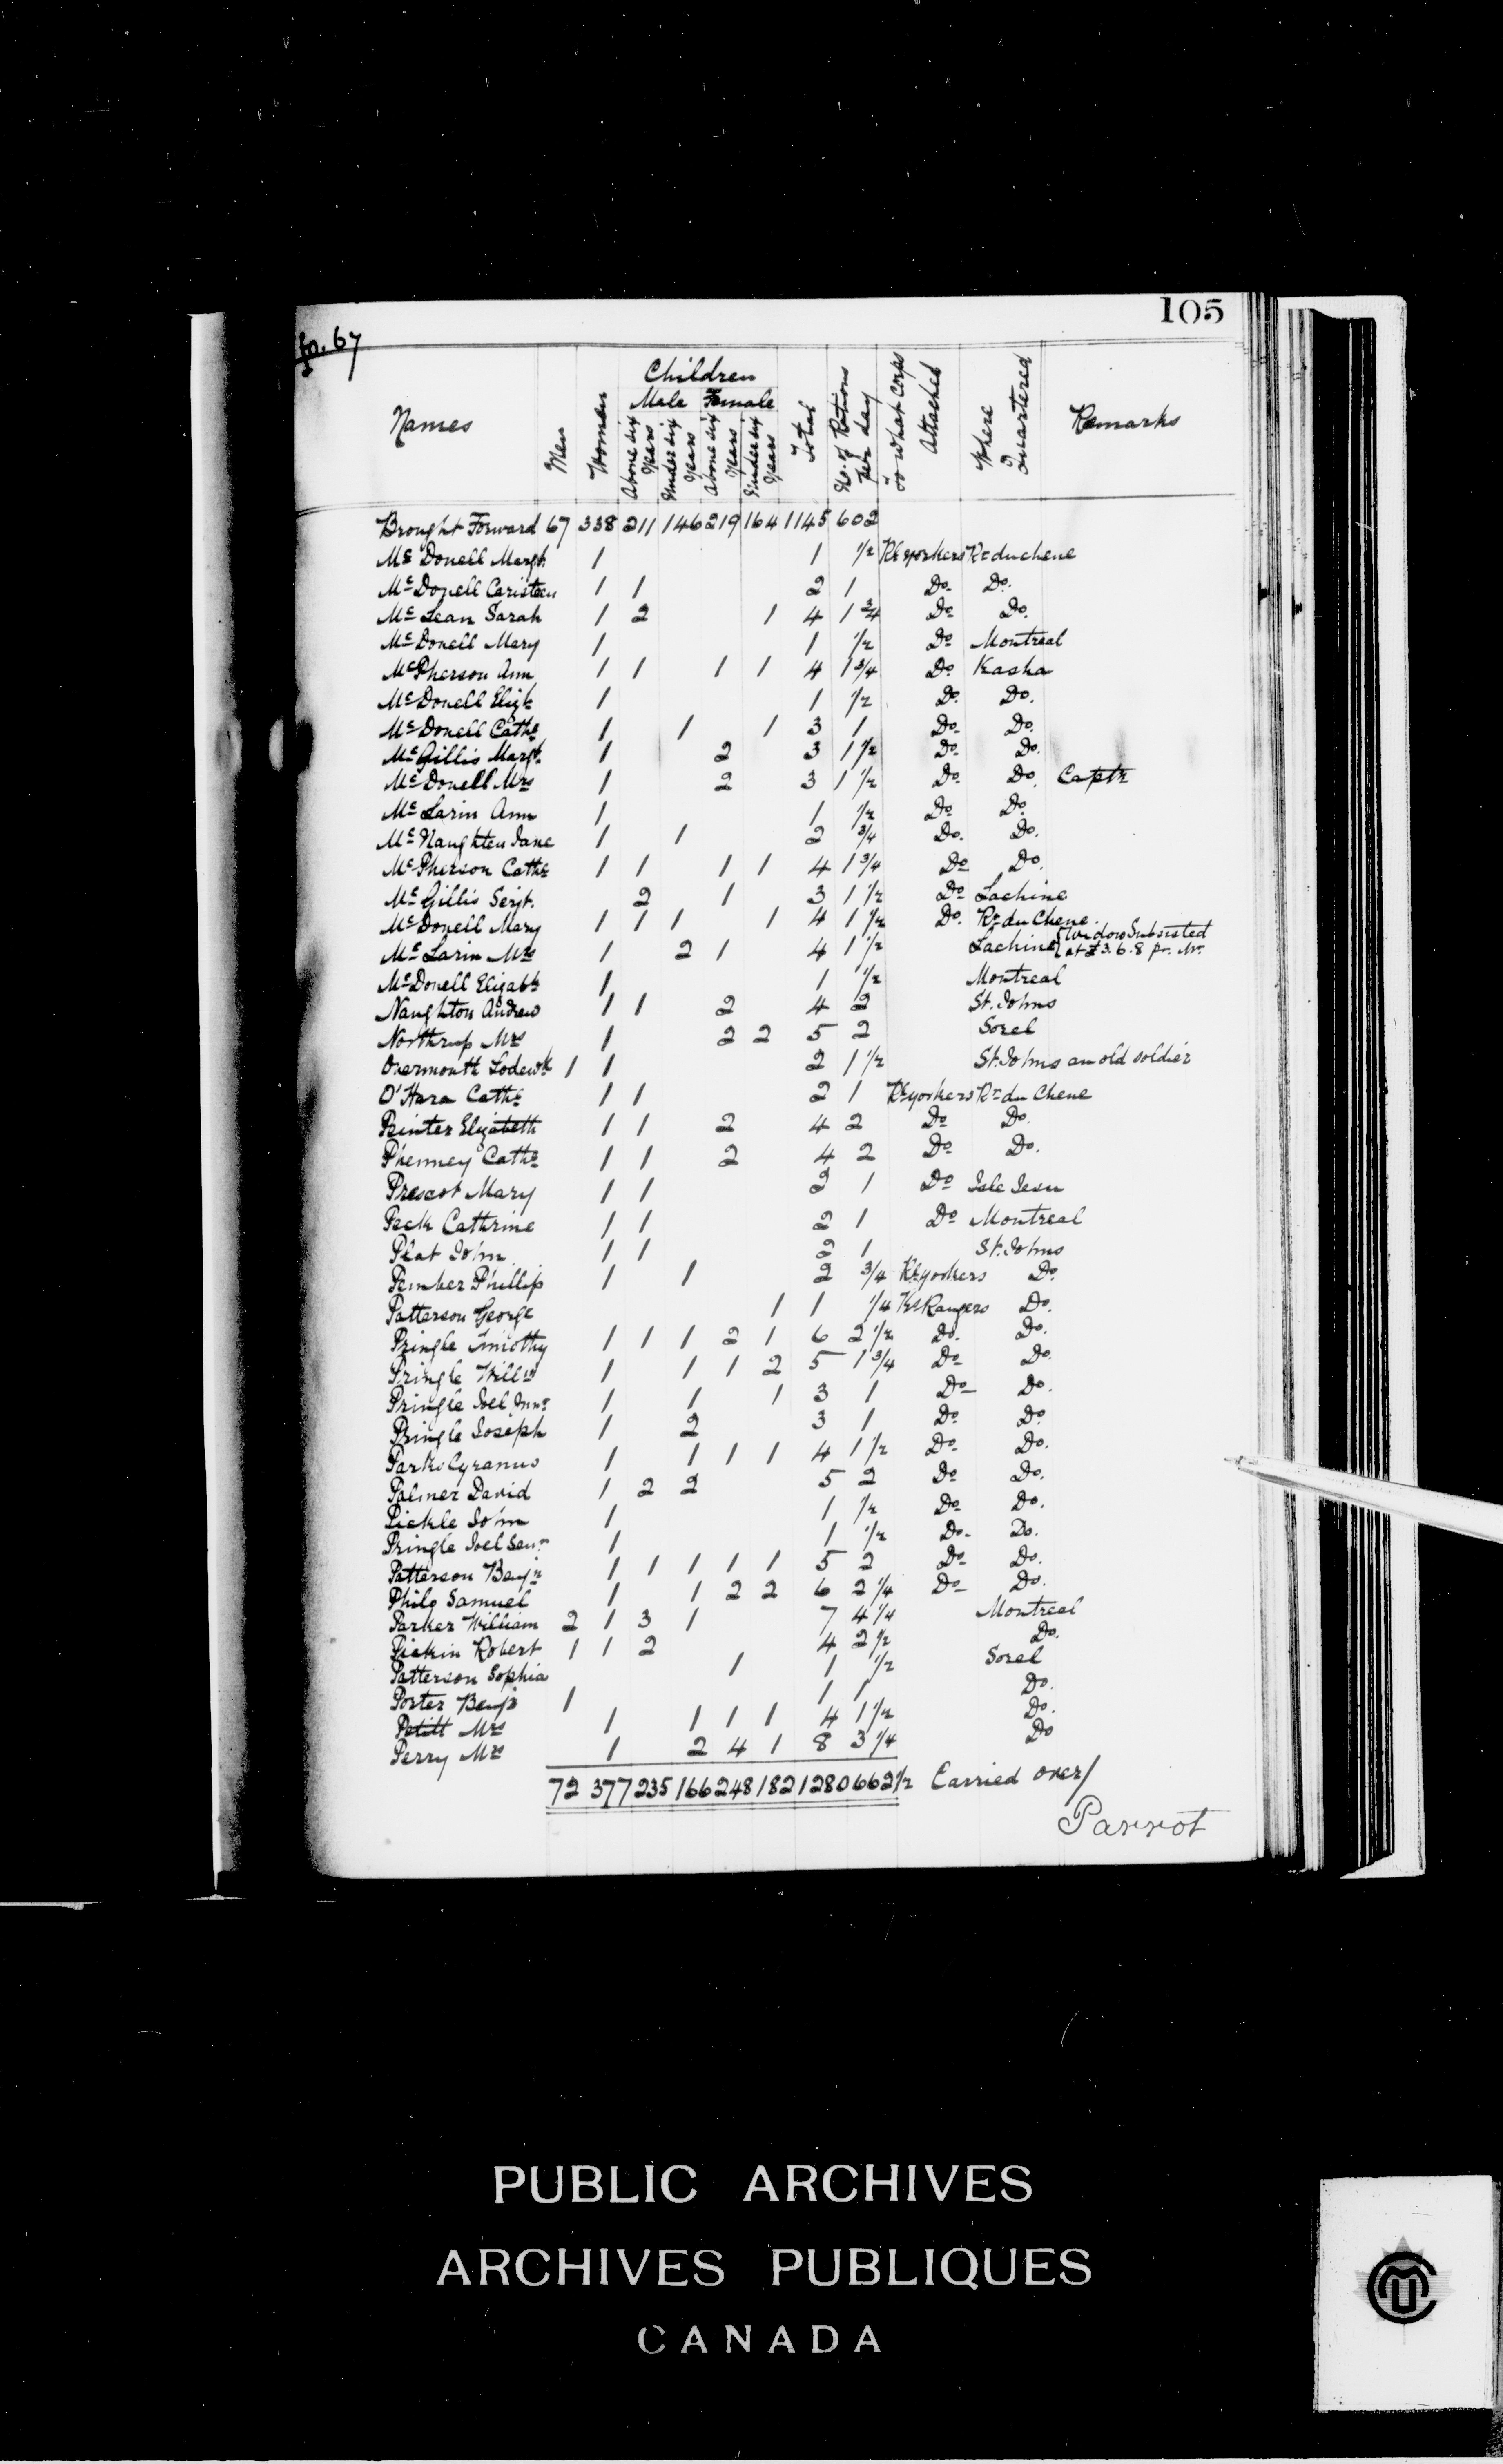 105
fo. 67
Names Men Women Children Total No. of Rations per day To what Corps Attached Where Quartered Remarks
Male Female
Above six Years Under six Years Above six Years Under six Years
Brought Forward 67 338 211 146 219 164 1145 602
Mc Donell Margt. 1 1 1/2 Rl. yorkers Rr duchene
Mc Donell Caristeen 1 1 2 1 Do. Do.
Mc Lean Sarah 1 2 1 4 1 3/4 Do Do.
Mc Donell Mary 1 1 1/2 Do Montreal
McPherson Ann 1 1 1 1 4 1 3/4 Do. Kasha
Mc Donell Elizh 1 1 1/2 Do. Do.
Mc Donell Cathe 1 1 1 3 1 Do. Do.
Mc Gillis Margt. 1 2 3 1 1/2 Do. Do.
Mc Donell Mrs 1 2 3 1 1/2 Do. Do. Captn
Mc Larin Ann 1 1 1/2 Do Do.
Mc Naughten Jane 1 1 2 3/4 Do. Do.
McPherson Cathe 1 1 1 1 4 1 3/4 Do Do.
Mc Gillis Serjt. 2 1 3 1 1/2 Do Lachine
Mc Donell Mary 1 1 1 1 4 1 1/2 Do. Rr du Chene.
Mc Larin Mrs 1 2 1 4 1 1/2 Lachine { Widow Subsisted at £3.6.8 pr. Ar.
McDonell Elizabh 1 1 1/2 Montreal
Naughton Andrew 1 1 2 4 2 St. Johns
Northrup Mrs 1 2 2 5 2 Sorel
Overmouth Lodewk 1 1 2 1 1/2 St. Johns an old soldier
O'Hara Cathe 1 1 2 1 Rl. yorkers Rr du Chene
Printer Elizabeth 1 1 2 4 2 Do Do.
Phenney Cathe 1 1 2 4 2 Do Do.
Prescot Mary 1 1 2 1 Do Isle Jesu
Peck Cathrine 1 1 2 1 Do Montreal
Plat John 1 1 2 1 St. Johns
Pember Phillip 1 1 2 3/4 Rl. yorkers Do.
Patterson George 1 1 1/4 Ks Rangers Do.
Pringle Timothy 1 1 1 2 1 6 2 1/2 Do. Do.
Pringle Willm 1 1 1 2 5 1 3/4 Do Do.
Pringle Joel Junr 1 1 1 3 1 Do Do.
Pringle Joseph 1 2 3 1 Do. Do.
Parks Cyranus 1 1 1 1 4 1 1/2 Do. Do.
Palmer David 1 2 2 5 2 Do Do.
Pickle John 1 1 1/2 Do Do.
Pringle Joel Senr 1 1 1/2 Do. Do.
Patterson Benjn 1 1 1 1 1 5 2 Do Do.
Philo Samuel 1 1 2 2 6 2 1/4 Do Do.
Parker William 2 1 3 1 7 4 1/4 Montreal
Pickin Robert 1 1 2 4 2 1/2 Do.
Patterson Sophia 1 1 1/2 Sorel
Porter Benjn 1 1 1 Do.
Petitt Mrs 1 1 1 1 4 1 1/2 Do.
Perry Mrs 1 2 4 1 8 3 1/4 Do
72 377 235 166 248 182 1280 662 1/2 Carried over/
Parrot
PUBLIC ARCHIVES
ARCHIVES PUBLIQUES
CANADA